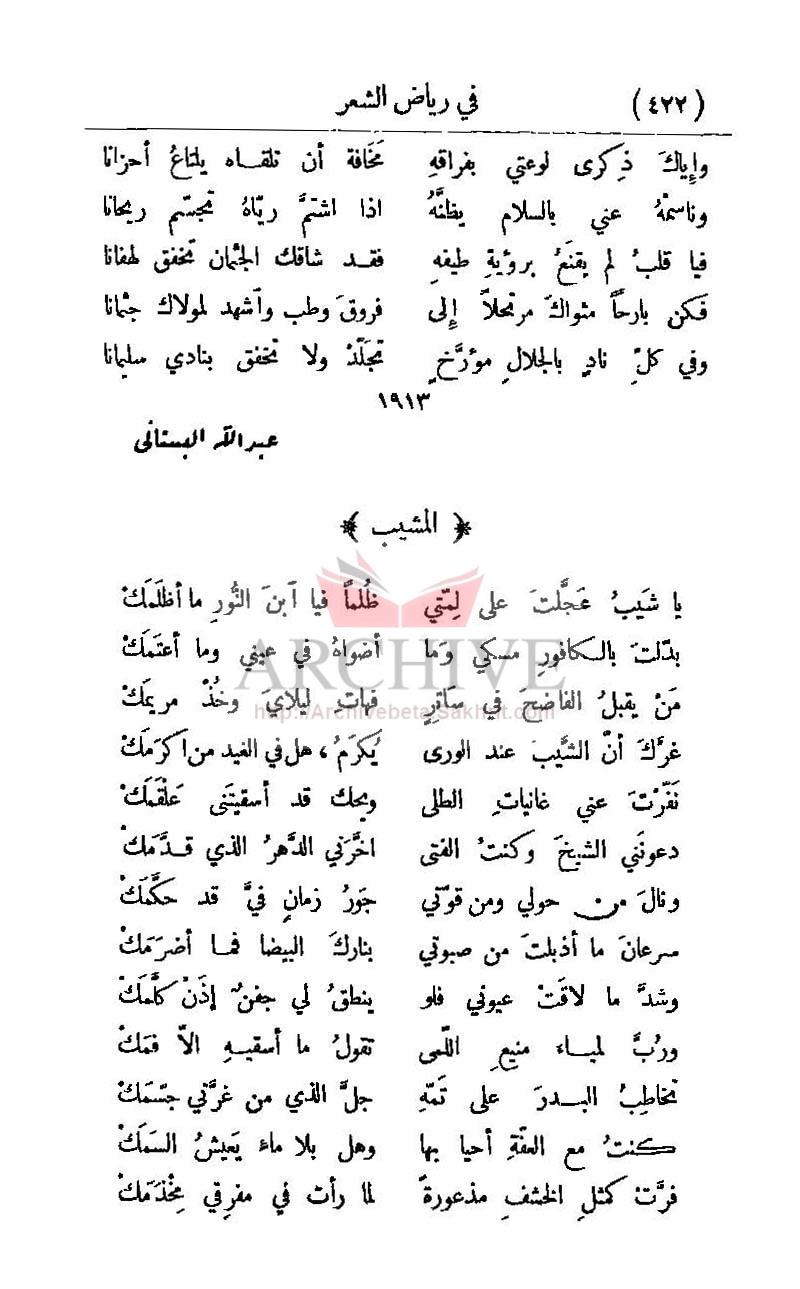 (٤٢٢) في رياض الشعر
وإياكَ ذِكرى لوعتي بفراقهِ مَخَافة أن تلقاه يلتاعُ أحزانا
وناسمْهُ عني بالسلام يظنَّهُ اذا اشتمَّ ريّاهُ تجسّم ريحانا
فيا قلبُ لم يقنَعُ برؤيةِ طيفهِ فقد شاقك الجثمان تخفق لهفانا
فَكن بارحاً مثواكَ مرتحلاً إِلى فروقَ وطب وآشهد لمولاك جثمانا
وفي كلِّ نادٍ بالجلالِ مؤرَّخٍ تجلّدْ ولا تخفق بنادي سليمانا
١٩١٣
عبد الله البستاني
﴿ المشيب ﴾
يا شيَبُ عَجَّلتَ على لِمّتي ظُلماً فيا آبنَ النُّورِ ما أظلَمَكْ
بدّلتَ بالكافورِ مسكي وَما أضواهُ في عيني وما أعتَمَكْ
مَنْ يقبلُ الفاضحَ في سَاترٍ فهاتِ ليلايَ وخُذْ مريمَكْ
غرَّكَ أنَّ الشَّيبَ عند الورى يُكرَمُ ، هل في الغيد من اكرَمَكْ
نَفَّرْتَ عني غانياتِ الطلى ويحك قد أسقيتَنى عَلْقَمَكْ
دعونَني الشيخَ وكنتُ الفتى اخَّرَني الدَّهرُ الذي قدَّمَكْ
ونالَ من حولي ومن قوّتي جَورُ زمانٍ فيَّ قد حكَّمَكْ
سرعانَ ما أذبلتَ من صبوتي بناركَ البيضا فما أضرَمَكْ
وشدَّ ما لاقَتْ عيوني فلو ينطقُ لي جفنٌ إذَنْ كلَّمَكْ
ورُبَّ لمياء منيعِ اللّمى تقولُ ما أسقيهِ الاّ فمَكْ
تخاطِبُ البدرَ على تَمّهِ جلَّ الذي من غرَّتي جسّمَكْ
كنتُ مع العفّةِ أحيا بها وهل بلا ماءٍ يَعيشُ السمَكْ
فرَّتْ كمثلِ الخشفِ مذعورةً لما رأت في مفرقي مِخْذمَكْ
ARCHIVE
http://Archivebeta.Sakhrit.com